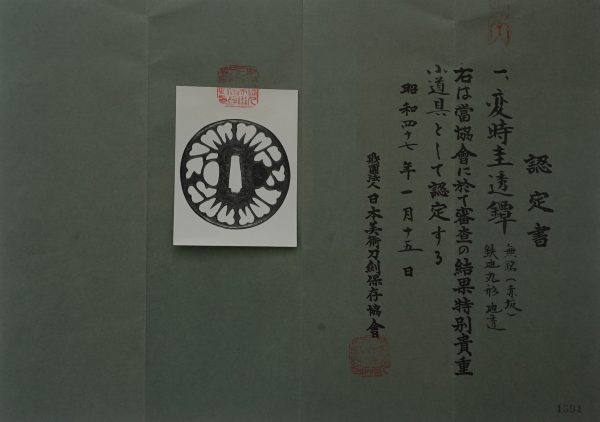 認定書
一、変時圭透鐔
無銘（赤坂）
鉄地丸形地透
右は當協會に於て審査の結果特别貴重
小道具として認定する
昭和四十七年一月十五日
財團法人日本美術刀剣保存協會
1591